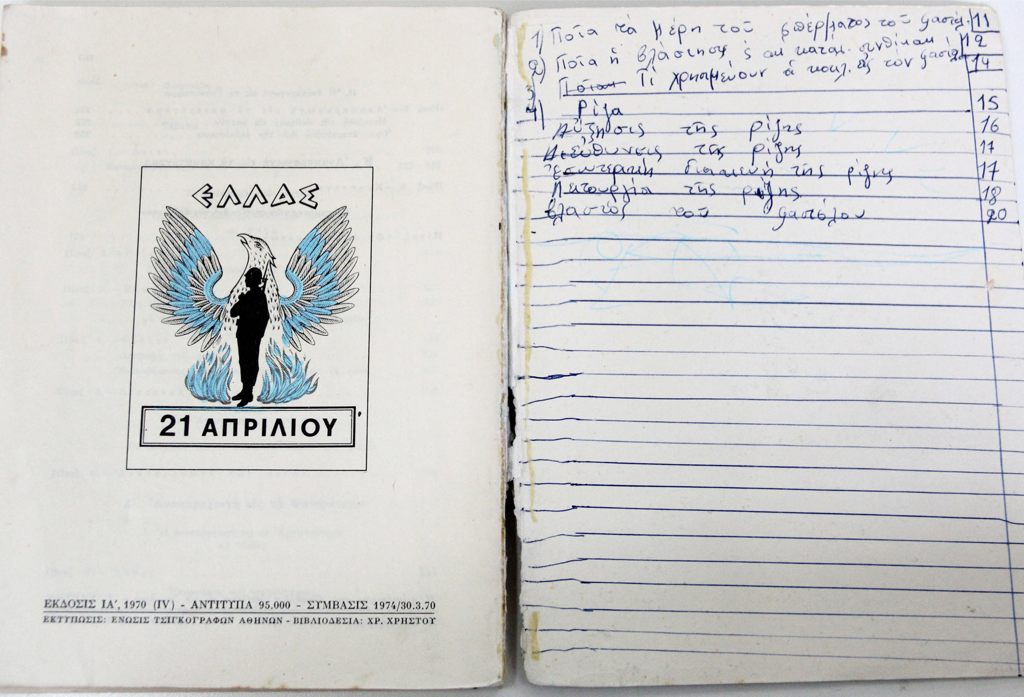 ΕΛΛΑΣ
21 ΑΠΡΙΛΙΟΥ
ΕΚΔΟΣΙΣ ΙΑ', 1970 (IV) - ΑΝΤΙΤΥΠΑ 95.000 - ΣΥΜΒΑΣΙΣ 1974/30.3.70
ΕΚΤΥΠΩΣΙΣ: ΕΝΩΣΙΣ ΤΣΙΓΚΟΓΡΑΦΩΝ ΑΘΗΝΩΝ - ΒΙΒΛΙΟΔΕΣΙΑ: ΧΡ. ΧΡΗΣΤΟΥ
1) Ποῖα τὰ μέρη τοῦ σπέρματος τοῦ φασιόλ. 11
2) Ποῖα ἡ βλάστησις 12
3 Τί χρησιμεύουν τὸν 14
4) Ρίζα 15
Αὔξησις τῆς ρίζης 16
Διεύθυνσις τῆς ρίζης 17
Ἐσωτερικὴ διασκευὴ τῆς ρίζης 17
Λειτουργία τῆς ρίζης 18
βλαστὸς τοῦ φασιόλου 20